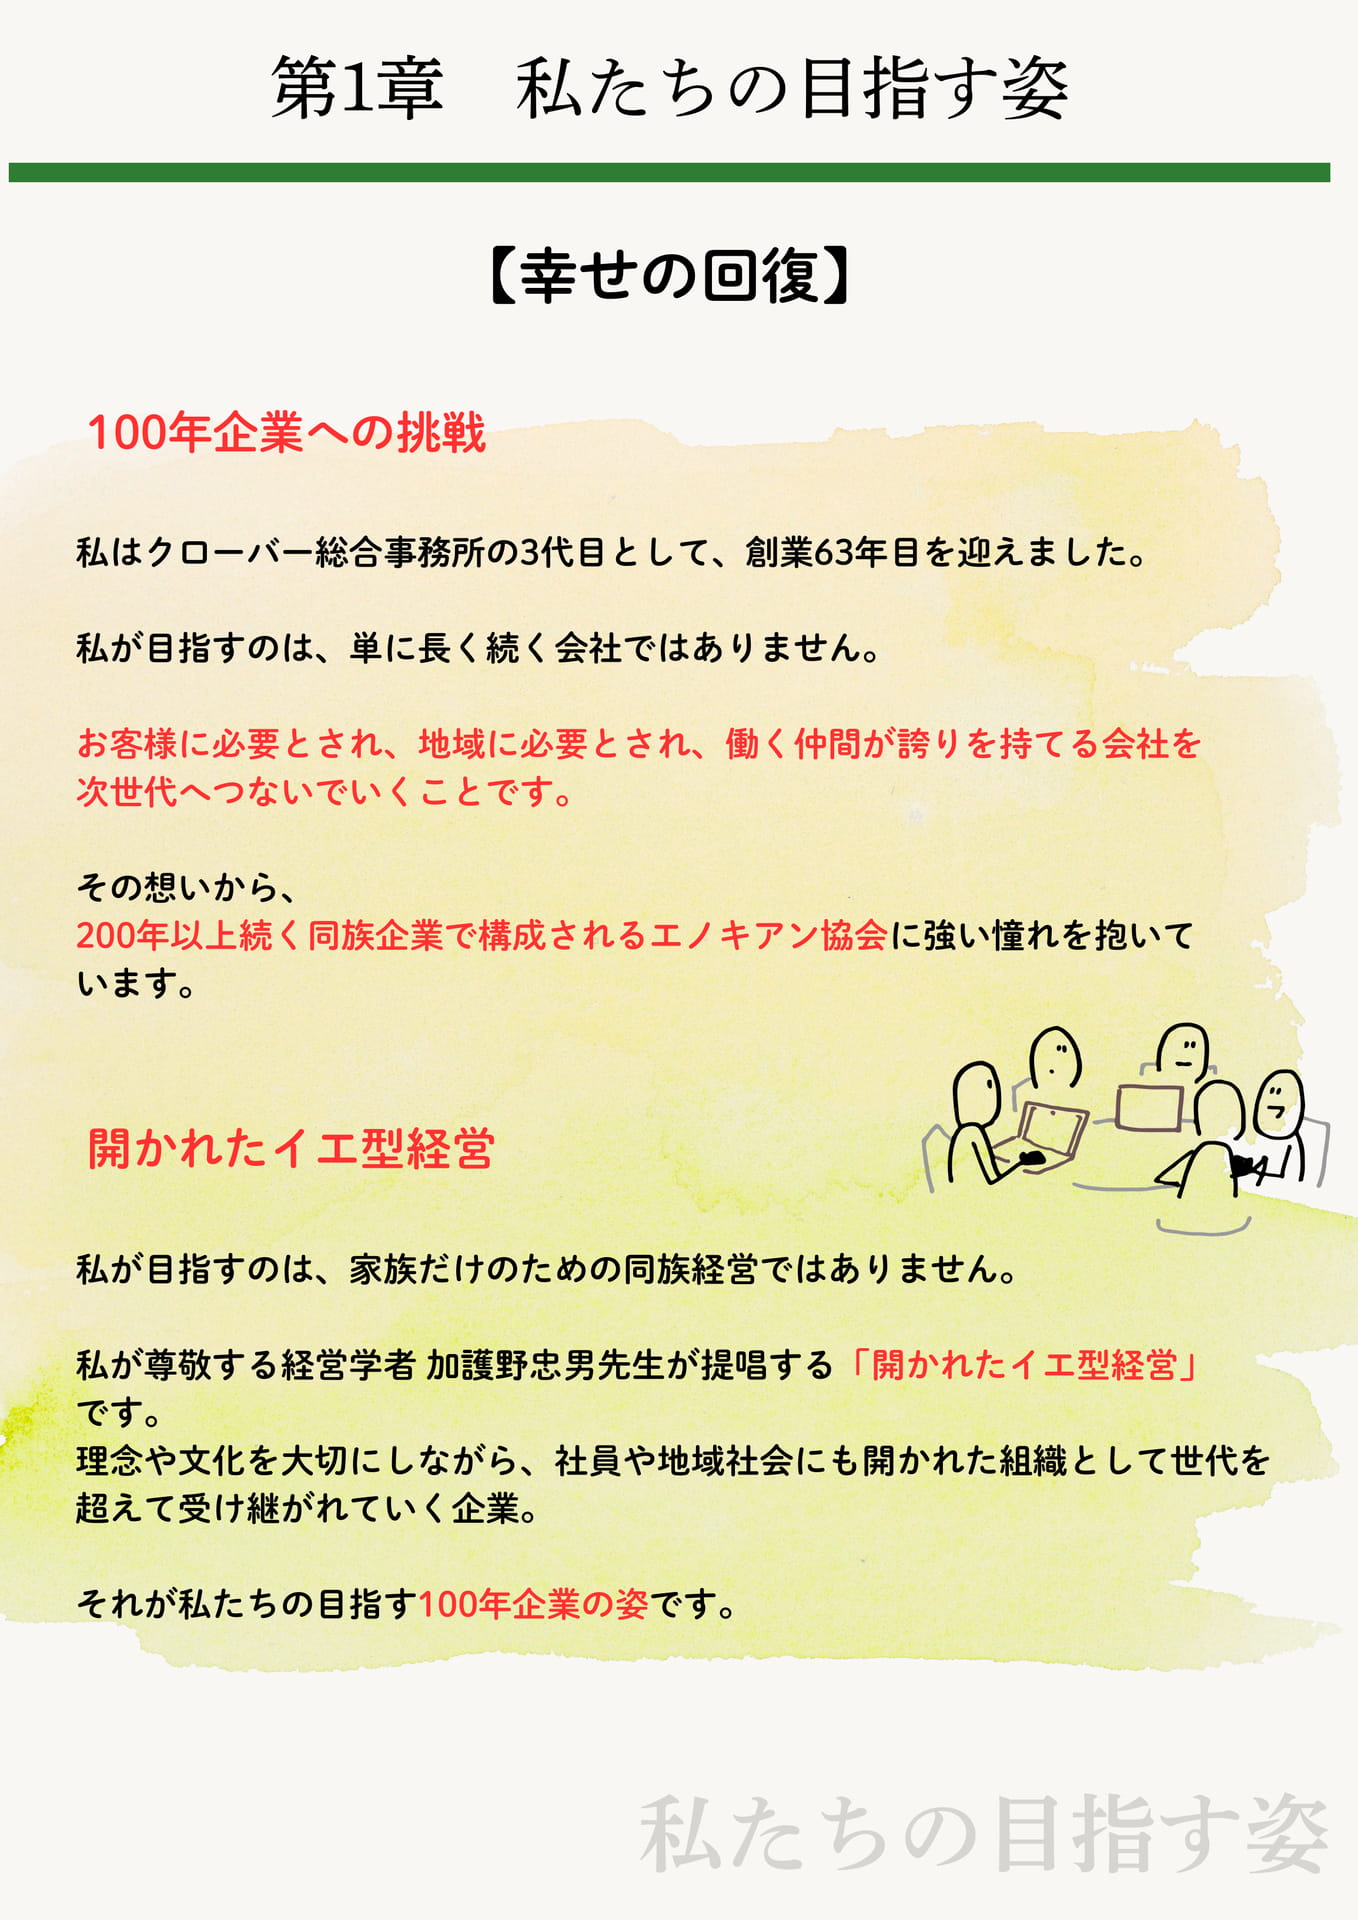 第1章　私たちの目指す姿
【幸せの回復】
100年企業への挑戦
私はクローバー総合事務所の3代目として、創業63年目を迎えました。
私が目指すのは、単に長く続く会社ではありません。
お客様に必要とされ、地域に必要とされ、働く仲間が誇りを持てる会社を
次世代へつないでいくことです。
その想いから、
200年以上続く同族企業で構成されるエノキアン協会に強い憧れを抱いて
います。
開かれたイエ型経営
私が目指すのは、家族だけのための同族経営ではありません。
私が尊敬する経営学者 加護野忠男先生が提唱する「開かれたイエ型経営」
です。
理念や文化を大切にしながら、社員や地域社会にも開かれた組織として世代を
超えて受け継がれていく企業。
それが私たちの目指す100年企業の姿です。
私たちの目指す姿